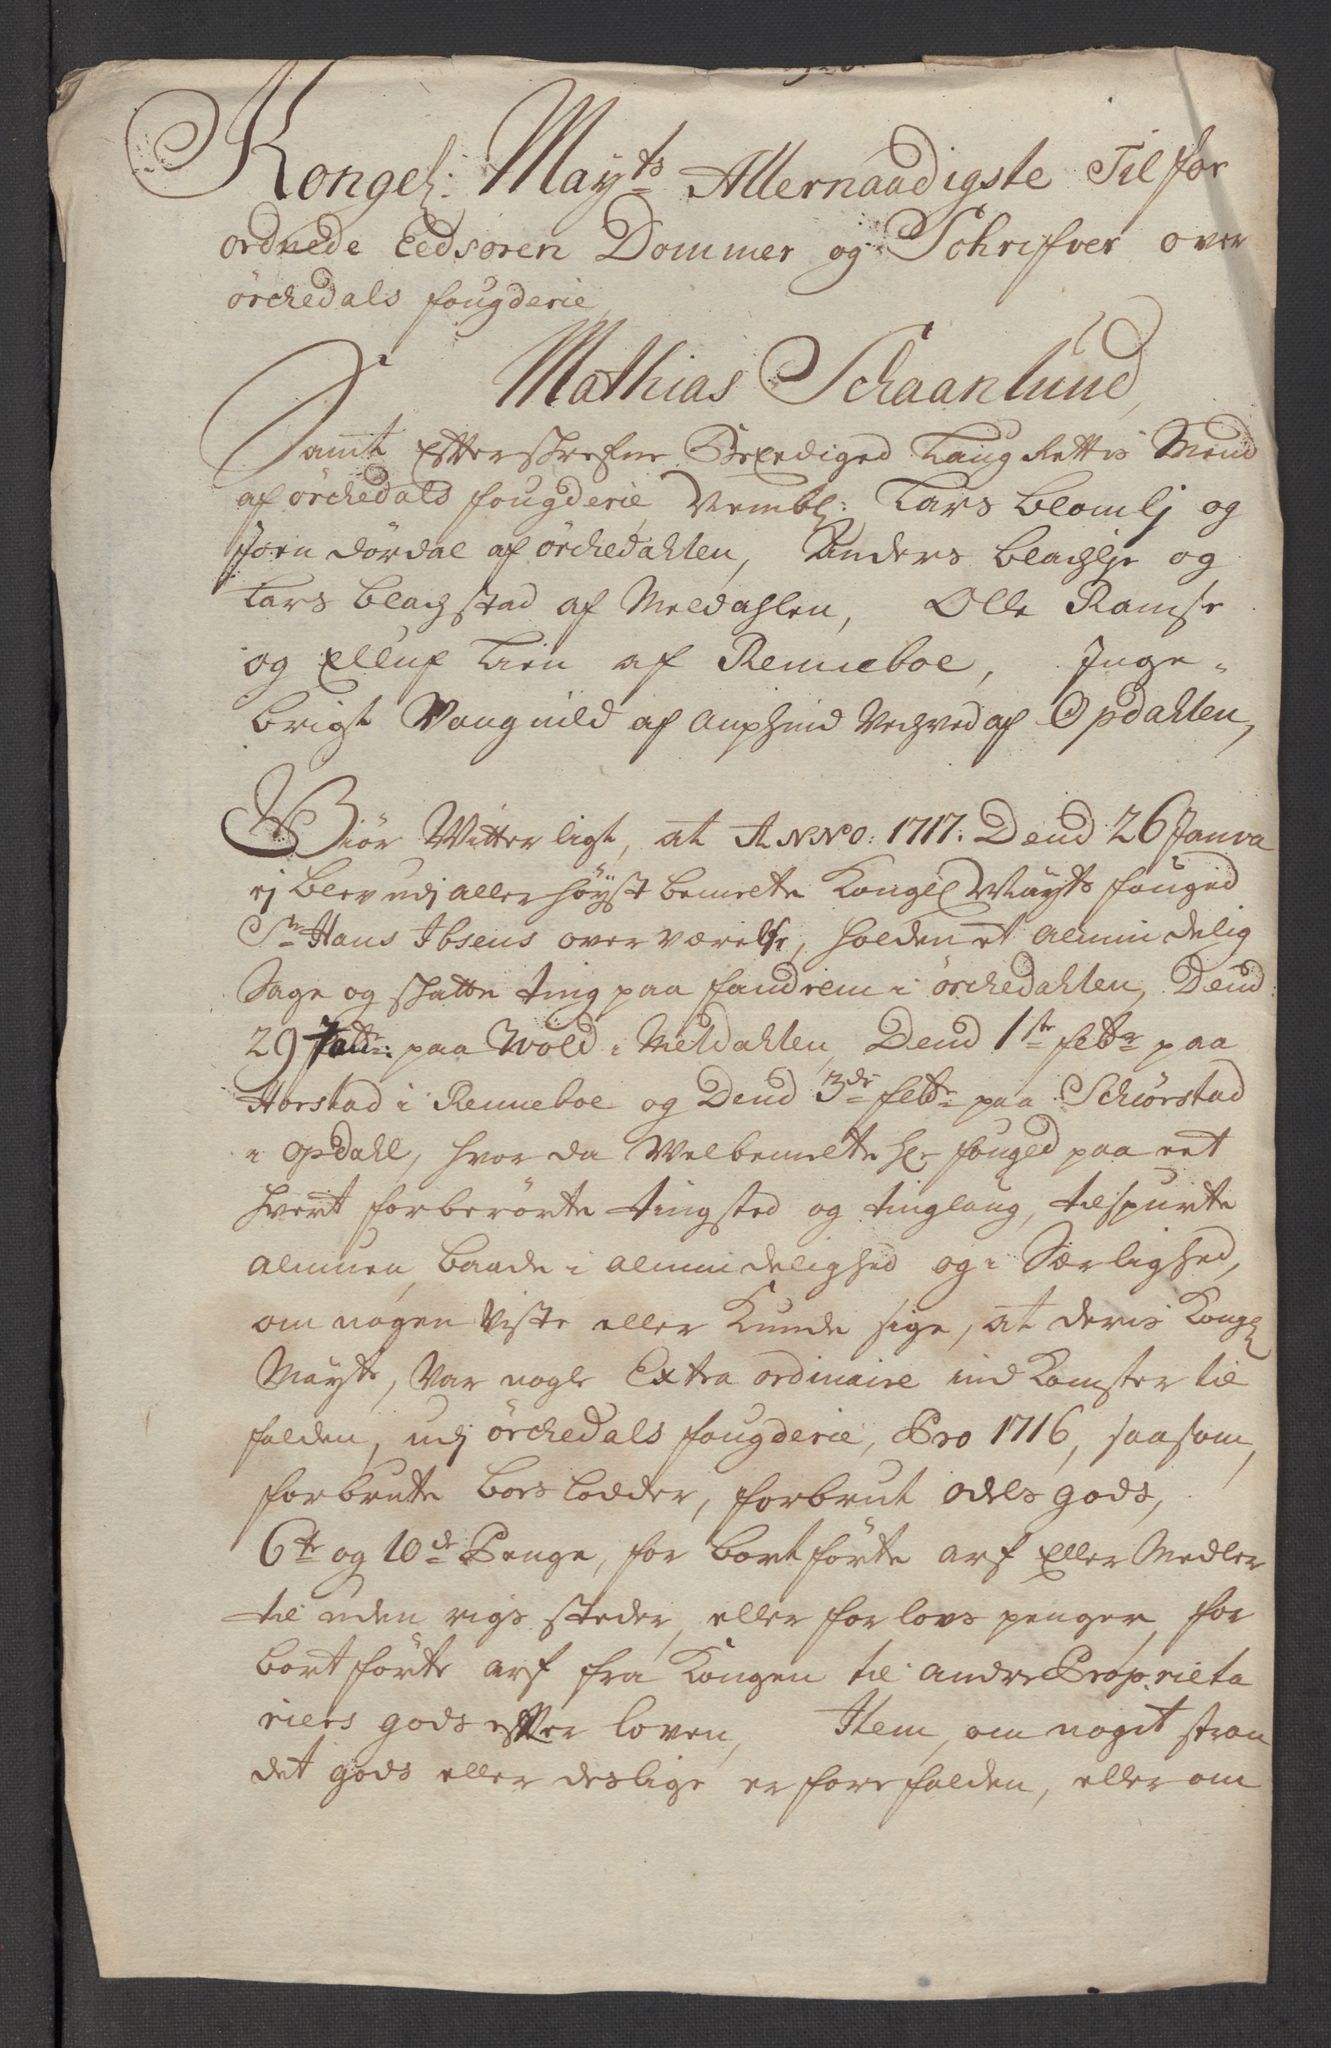 Kongel: Mayts Allernaadigste Tilfor
ordnede Eedsoren Dommer og Schrifver over
örchedals fougderie,
Mathias Schaanlund,
Samt Efterschrefne Beeediged Laug Rettis Mend
af örchedals fougderie, Nembl: Lars blomlj og
Joen dördal af örchedahlen, Anders blachlje og
Lars blachstad af Meldahlen, Olle Ramse
og Elluf Lien af Renneboe, Inge-
brigt Vangnild af Anphind Vechved af Opdahlen,
Giör Witterligt, at ANNO: 1717. Dend 26 Janva
rj blev udj allerhöyst bemelte Kongel Mayts fouged
Sr Hans Ibsens overværelse, holden et almindelig
Sage og skatte ting paa fandrem i örchedahlen, Dend
29 Jan: paa Wold i Meldahlen, Dend 1ste febr paa
Horstad i Renneboe og Dend 3de febr paa Schiörstad
i opdahl, hvor da Welbemelte hr fouged paa eet
hvert forberörte tingsted og tinglaug, tilspurte
almuen, baade i almindelighed og i Særlighed,
om nogen viste eller Kunde sige, at deris Kongl
Mayts, var nogle Extra ordinaire ind Komster til
falden, udj örchedals fougderie, Pro 1716, saasom,
forbrutte boeslodder, forbrut odelsgods,
6te og 10de Penge, for bortförte arf Eller Medler
til uden rigs steder, eller forlovs penger, for
bortförte arf fra Kongen til andre Proprieta
riers gods efter loven, Item, om noget stran
det gods eller deslige er forefalden, eller om